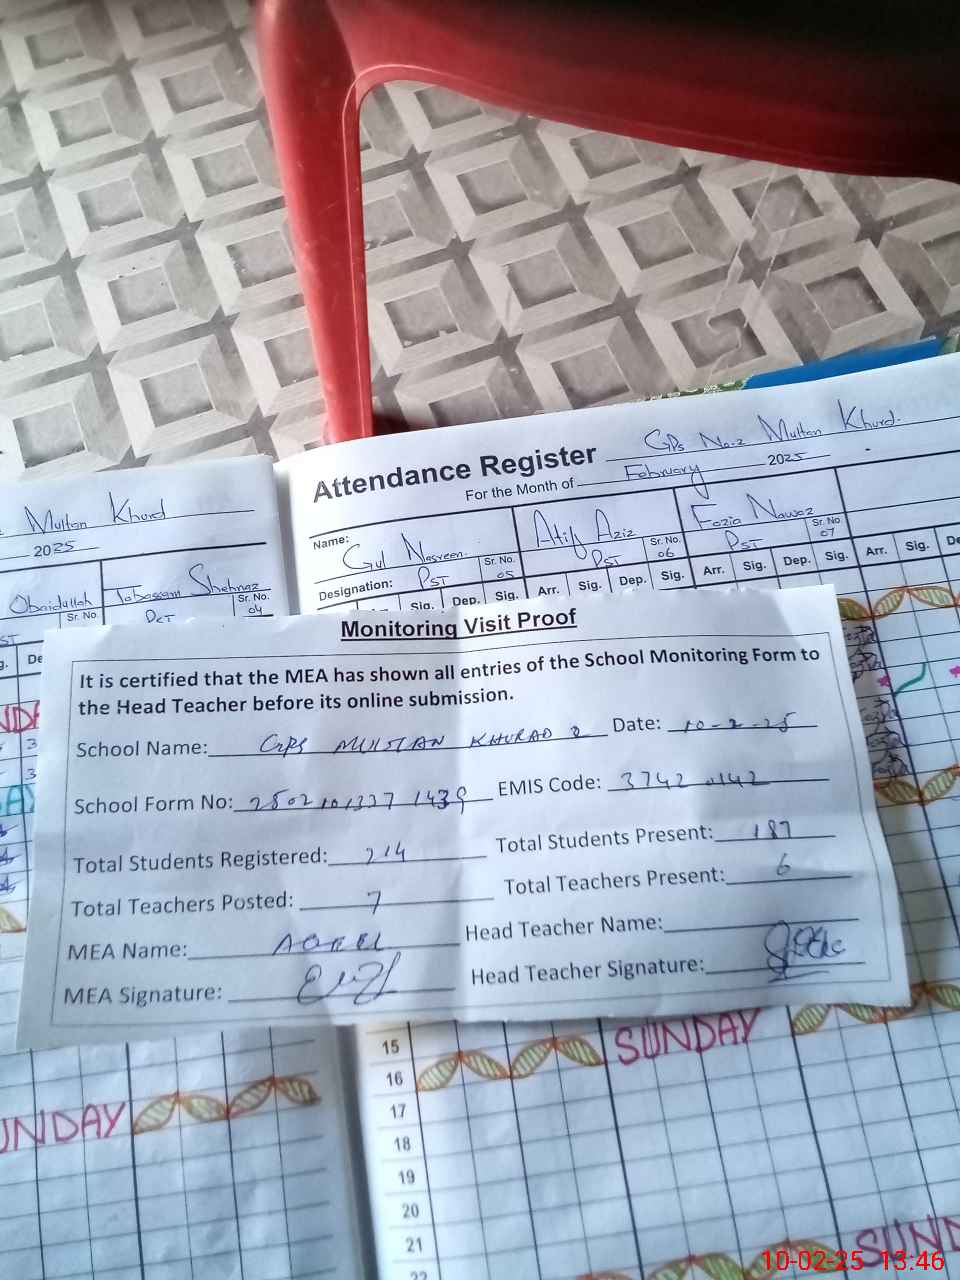 Attendance Register GPs No.2 Multan Khurd.
For the Month of February 2025
Multan Khurd
2025
Name: Gul Nasreen Atif Aziz Fozia Nawaz
Sr. No. 05 Sr. No. 06 Sr. No. 07
Designation: PST PST PST
Sig. Dep. Sig. Arr. Sig. Dep. Sig. Arr. Sig. Dep. Sig. Arr. Sig.
Obaidullah Tabassam Shehnaz
Sr. No. Sr. No. 04
Monitoring Visit Proof
It is certified that the MEA has shown all entries of the School Monitoring Form to
the Head Teacher before its online submission.
School Name: GPS MULTAN KHURAD 2 Date: 10-2-25
School Form No: 2502101337 1439 EMIS Code: 3742 0142
Total Students Registered: 214 Total Students Present: 187
Total Teachers Posted: 7 Total Teachers Present: 6
MEA Name: Head Teacher Name:
MEA Signature: Head Teacher Signature:
15 SUNDAY
16
17
18
19
20
21
22
10-02-25 13:46